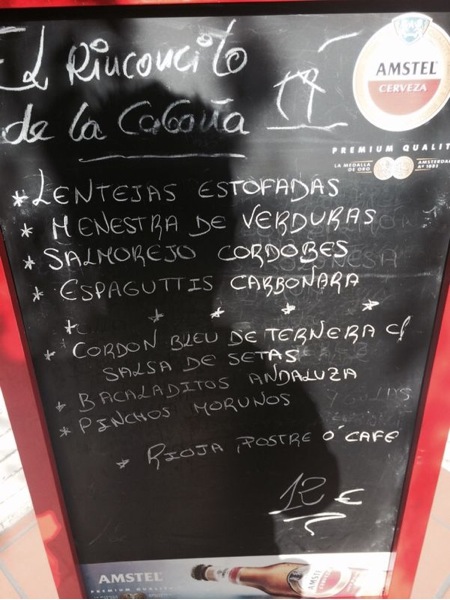 El Rinconcito
de la Cabaña
AMSTEL
CERVEZA
PREMIUM QUALIT
LA MEDALLA
DE ORO
AMSTERDAM
Aº 1883
* LENTEJAS ESTOFADAS
* MENESTRA DE VERDURAS
* SALMOREJO CORDOBES
* ESPAGUTTIS CARBOÑARA
* * * * *
* CORDON BLEU DE TERNERA C/
SALSA DE SETAS
* BACALADITOS ANDALUZA
* PINCHOS MORUNOS
* RIOJA, POSTRE O' CAFE
12 €
AMSTEL
PREMIUM QUALITY
AMSTEL